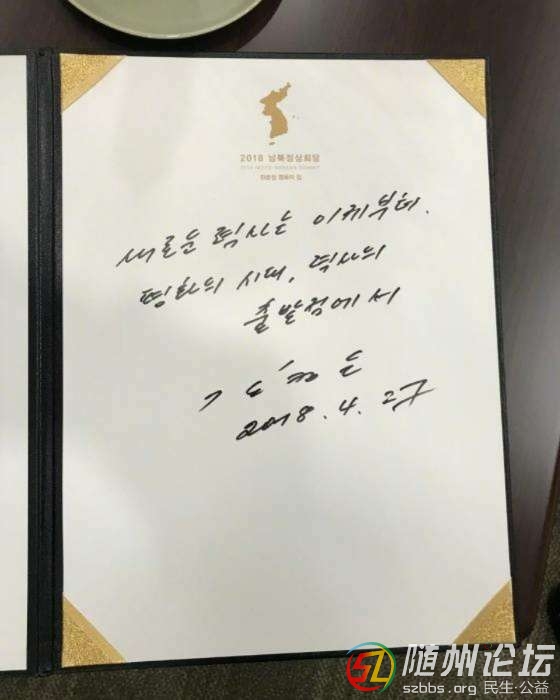 2018 남북정상회담
2018 INTER-KOREAN SUMMIT
판문점 평화의 집
새로운 력사는 이제부터.
평화의 시대, 력사의
출발점에서
김정은
2018. 4. 27
随州论坛
szbbs.org 民生·公益